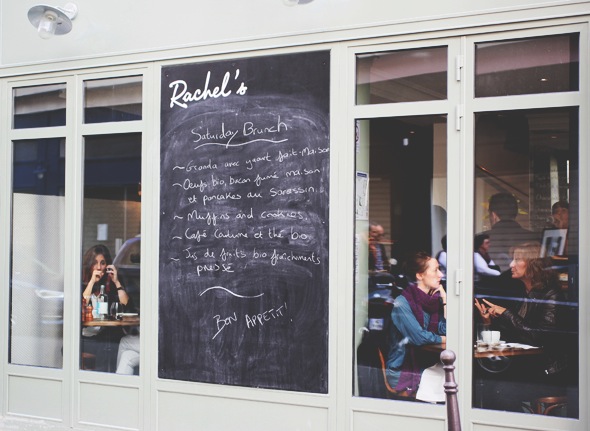 Rachel's
Saturday Brunch
~ Granola avec yaourt fait-Maison
~ Oeufs bio, bacon fumé maison
et pancakes au Sarassin
~ Muffins and cookies
~ Café Coutume et thé bio
~ Jus de fruits bio fraîchements
pressé
BON APPETIT!